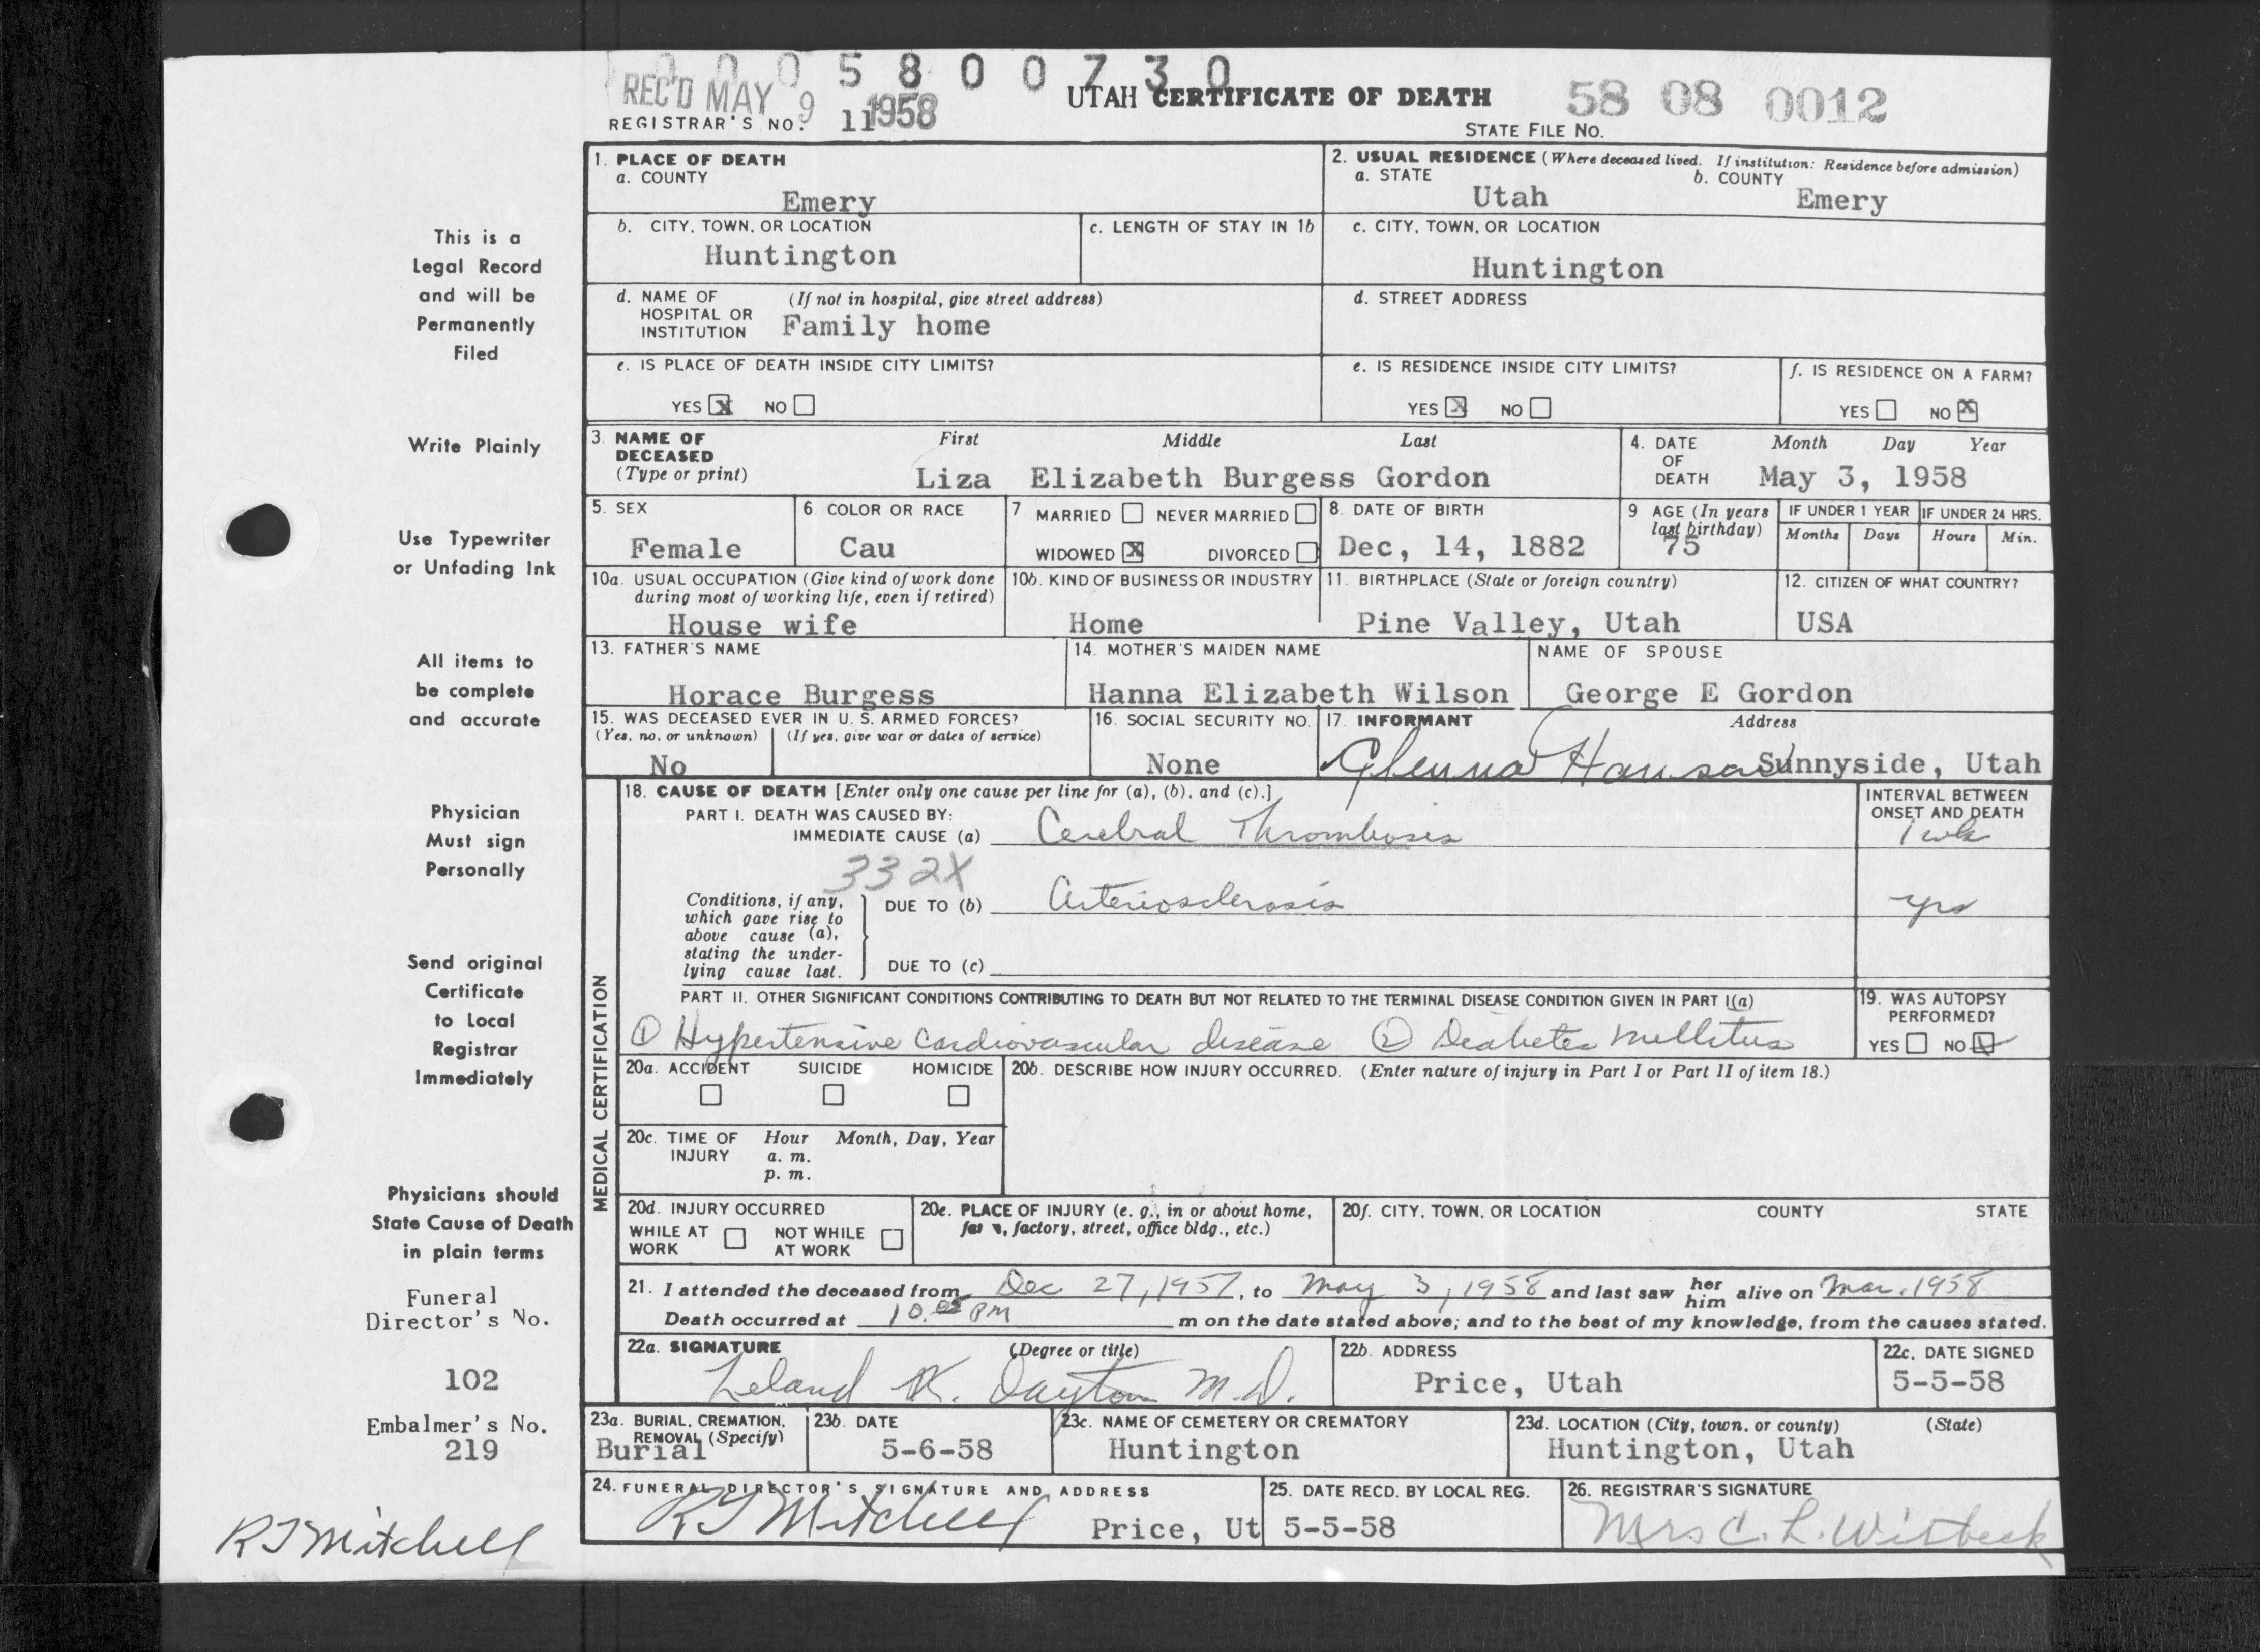 0 0 0 5 8 0 0 7 3 0
REC'D MAY 9 1958
UTAH CERTIFICATE OF DEATH
58 08 0012
REGISTRAR'S NO. 11
STATE FILE NO.
1. PLACE OF DEATH
a. COUNTY
Emery
2. USUAL RESIDENCE (Where deceased lived. If institution: Residence before admission)
a. STATE
Utah
b. COUNTY
Emery
b. CITY, TOWN, OR LOCATION
Huntington
c. LENGTH OF STAY IN 1b
c. CITY, TOWN, OR LOCATION
Huntington
d. NAME OF HOSPITAL OR INSTITUTION
(If not in hospital, give street address)
Family home
d. STREET ADDRESS
e. IS PLACE OF DEATH INSIDE CITY LIMITS?
YES X NO
e. IS RESIDENCE INSIDE CITY LIMITS?
YES X NO
f. IS RESIDENCE ON A FARM?
YES NO X
3. NAME OF DECEASED
(Type or print)
First Middle Last
Liza Elizabeth Burgess Gordon
4. DATE OF DEATH
Month Day Year
May 3, 1958
5. SEX
Female
6 COLOR OR RACE
Cau
7 MARRIED NEVER MARRIED
WIDOWED X DIVORCED
8. DATE OF BIRTH
Dec, 14, 1882
9 AGE (In years last birthday)
75
IF UNDER 1 YEAR
Months Days
IF UNDER 24 HRS.
Hours Min.
10a. USUAL OCCUPATION (Give kind of work done during most of working life, even if retired)
House wife
10b. KIND OF BUSINESS OR INDUSTRY
Home
11. BIRTHPLACE (State or foreign country)
Pine Valley, Utah
12. CITIZEN OF WHAT COUNTRY?
USA
13. FATHER'S NAME
Horace Burgess
14. MOTHER'S MAIDEN NAME
Hanna Elizabeth Wilson
NAME OF SPOUSE
George E Gordon
15. WAS DECEASED EVER IN U. S. ARMED FORCES?
(Yes, no, or unknown) (If yes, give war or dates of service)
No
16. SOCIAL SECURITY NO.
None
17. INFORMANT
Address
Glenna Hanson Sunnyside, Utah
MEDICAL CERTIFICATION
18. CAUSE OF DEATH [Enter only one cause per line for (a), (b), and (c).]
PART I. DEATH WAS CAUSED BY:
IMMEDIATE CAUSE (a) Cerebral Thrombosis
INTERVAL BETWEEN ONSET AND DEATH
1 wk
332X
Conditions, if any, which gave rise to above cause (a), stating the underlying cause last.
DUE TO (b) Arteriosclerosis
yrs
DUE TO (c)
PART II. OTHER SIGNIFICANT CONDITIONS CONTRIBUTING TO DEATH BUT NOT RELATED TO THE TERMINAL DISEASE CONDITION GIVEN IN PART I(a)
① Hypertensive cardiovascular disease ② Diabetes Mellitus
19. WAS AUTOPSY PERFORMED?
YES NO ✓
20a. ACCIDENT SUICIDE HOMICIDE
20b. DESCRIBE HOW INJURY OCCURRED. (Enter nature of injury in Part I or Part II of item 18.)
20c. TIME OF INJURY
Hour Month, Day, Year
a. m.
p. m.
20d. INJURY OCCURRED
WHILE AT WORK NOT WHILE AT WORK
20e. PLACE OF INJURY (e. g., in or about home, farm, factory, street, office bldg., etc.)
20f. CITY, TOWN, OR LOCATION COUNTY STATE
21. I attended the deceased from Dec 27, 1957, to May 3, 1958 and last saw her him alive on Mar. 1958
Death occurred at 10:05 PM m on the date stated above; and to the best of my knowledge, from the causes stated.
22a. SIGNATURE (Degree or title)
Leland K. Dayton M.D.
22b. ADDRESS
Price, Utah
22c. DATE SIGNED
5-5-58
23a. BURIAL, CREMATION, REMOVAL (Specify)
Burial
23b. DATE
5-6-58
23c. NAME OF CEMETERY OR CREMATORY
Huntington
23d. LOCATION (City, town, or county) (State)
Huntington, Utah
24. FUNERAL DIRECTOR'S SIGNATURE AND ADDRESS
RJ Mitchell Price, Ut
25. DATE RECD. BY LOCAL REG.
5-5-58
26. REGISTRAR'S SIGNATURE
Mrs C. L. Witbeck
This is a
Legal Record
and will be
Permanently
Filed
Write Plainly
Use Typewriter
or Unfading Ink
All items to
be complete
and accurate
Physician
Must sign
Personally
Send original
Certificate
to Local
Registrar
Immediately
Physicians should
State Cause of Death
in plain terms
Funeral
Director's No.
102
Embalmer's No.
219
RJ Mitchell